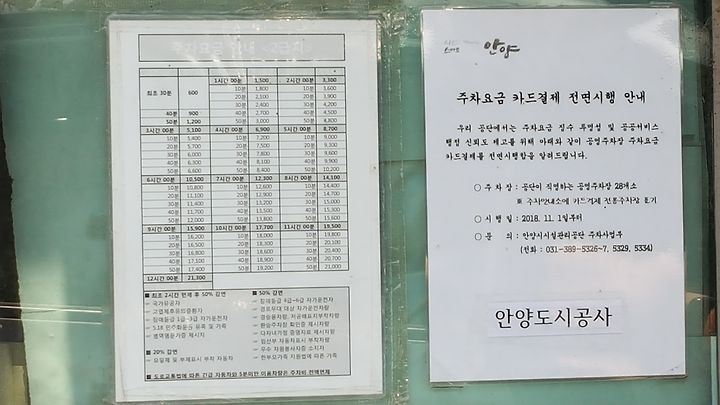 주차요금 안내 <2급지>
1시간 00분 1,500 2시간 00분 3,300
최초 30분 600 10분 1,800 10분 3,600
20분 2,100 20분 3,900
30분 2,400 30분 4,200
40분 900 40분 2,700 40분 4,500
50분 1,200 50분 3,000 50분 4,800
3시간 00분 5,100 4시간 00분 6,900 5시간 00분 8,700
10분 5,400 10분 7,200 10분 9,000
20분 5,700 20분 7,500 20분 9,300
30분 6,000 30분 7,800 30분 9,600
40분 6,300 40분 8,100 40분 9,900
50분 6,600 50분 8,400 50분 10,200
6시간 00분 10,500 7시간 00분 12,300 8시간 00분 14,100
10분 10,800 10분 12,600 10분 14,400
20분 11,100 20분 12,900 20분 14,700
30분 11,400 30분 13,200 30분 15,000
40분 11,700 40분 13,500 40분 15,300
50분 12,000 50분 13,800 50분 15,600
9시간 00분 15,900 10시간 00분 17,700 11시간 00분 19,500
10분 16,200 10분 18,000 10분 19,800
20분 16,500 20분 18,300 20분 20,100
30분 16,800 30분 18,600 30분 20,400
40분 17,100 40분 18,900 40분 20,700
50분 17,400 50분 19,200 50분 21,000
12시간 00분 21,300
■ 최초 2시간 면제 후 50% 감면
⇒ 국가유공자
⇒ 고엽제후유의증환자
⇒ 장애등급 1급~3급 자가운전자
⇒ 5.18 민주화운동 유족 및 가족
⇒ 병역명문가증 제시자
■ 20% 감면
⇒ 요일제 및 부제표시 부착 자동차
■ 50% 감면
⇒ 장애등급 4급~6급 자가운전자
⇒ 경로우대 대상 자가운전차량
⇒ 경승용차량, 저공해표지부착차량
⇒ 환승주차장 확인증 제시차량
⇒ 다자녀가정 증명자료 제시차량
⇒ 임산부 자동차표시 부착차량
⇒ 우수 자원봉사자증 소지자
⇒ 한부모가족 지원법에 따른 가족
■ 도로교통법에 따른 긴급 자동차와 5분미만 이용차량은 주차비 전액면제
안양
주차요금 카드결제 전면시행 안내
우리 공단에서는 주차요금 징수 투명성 및 공공서비스
행정 신뢰도 제고를 위해 아래와 같이 공영주차장 주차요금
카드결제를 전면시행함을 알려드립니다.
○ 주 차 장 : 공단이 직영하는 공영주차장 28개소
※ 주차안내소에 카드결제 전용주차장 표기
○ 시 행 일 : 2018. 11. 1일부터
○ 문 의 : 안양시시설관리공단 주차사업부
(전화 : 031-389-5326~7, 5329, 5334)
안양도시공사